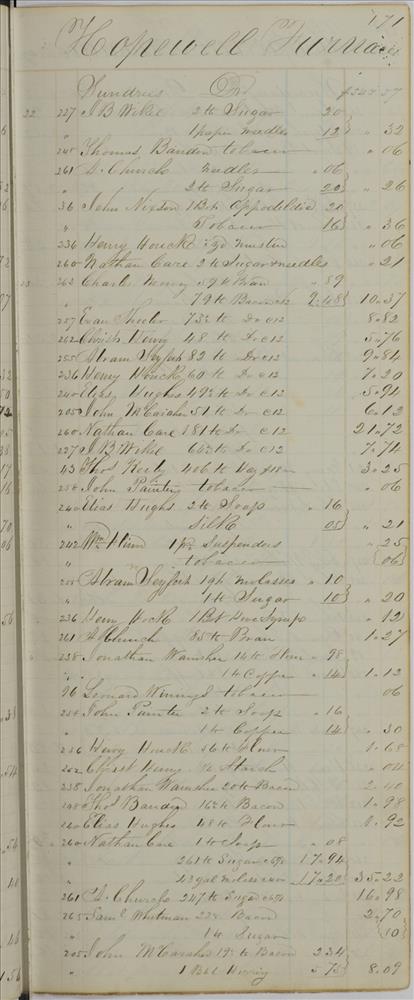 171
Hopewell Furnace
Sundries Dr
22 227 J B Wikel 2 lb Sugar 20
" 1 paper needles 12 " 32
Thomas Bauden tobacco " 06
261 D. Church needles " 06
" 2 lb Sugar 20 " 26
36 John Nixson 1 Bot Oppodeldoc 20
" Tobacco 16 " 36
236 Henry Houck yd muslin " 06
260 Nathan Care 2 lb Sugar & needles " 21
23 262 Charles Henry lb Bran " 89
" 79 lb Bacon 12 9.48 10.37
257 Evan Sheeler 73½ lb Do c12 8.82
262 Christ Henry 48 lb Do c12 5.76
255 Abram Seyfert 82 lb Do c12 9.84
236 Henry Houck 60 lb Do c12 7.20
240 Elias Hughs 49½ lb Do c12 5.94
205 John McCaraher 51 lb Do c12 6.12
260 Nathan Care 181 lb Do c12 21.72
227 J B Wikel 64½ lb Do c12 7.74
43 Thos Kerby 406 lb Hay 3.25
254 John Painter tobacco " 06
240 Elias Hughs 2 lb Soap " 16
" Silk 05 " 21
242 Wm Hinn 1 pr Suspenders " 25
" tobacco 06
255 Abram Seyfert 1 qt molasses " 10
" 1 lb Sugar 10 " 20
236 Henry Houck 1 Bot Hive Syrup " 12
261 D Church 85 lb Bran 1.27
238 Jonathan Wamsher 14 lb " 98
" 1 lb Coffee " 14 1.12
96 Leonard tobacco 06
254 John Painter 2 lb Soap " 16
" 1 lb Coffee 14 " 30
236 Henry Houck 56 lb Flour 1.68
262 Christ Henry ½ Starch " 04
238 Jonathan Wamsher 20 lb Bacon 2.40
248 Thos Bauden 16½ lb Bacon 1.98
240 Elias Hughs 48 lb Flour 1.92
260 Nathan Care 1 lb Soap " 08
" 261 lb Sugar 17.94
" 43 gal molasses 17.20 35.22
261 D. Church 247 lb Sugar 16.98
265 Saml Whitman 22½ Bacon 2.70
" 1 lb Sugar 10
205 John McCaraher 19½ lb Bacon 2.34
" 1 Bbl Herring 5.75 8.09